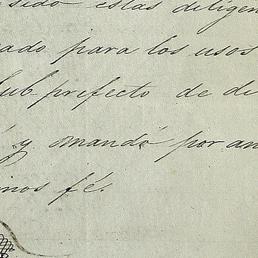 sido estas diligen
ado para los usos
Sub prefecto de di
y mandó por an
mos fé.